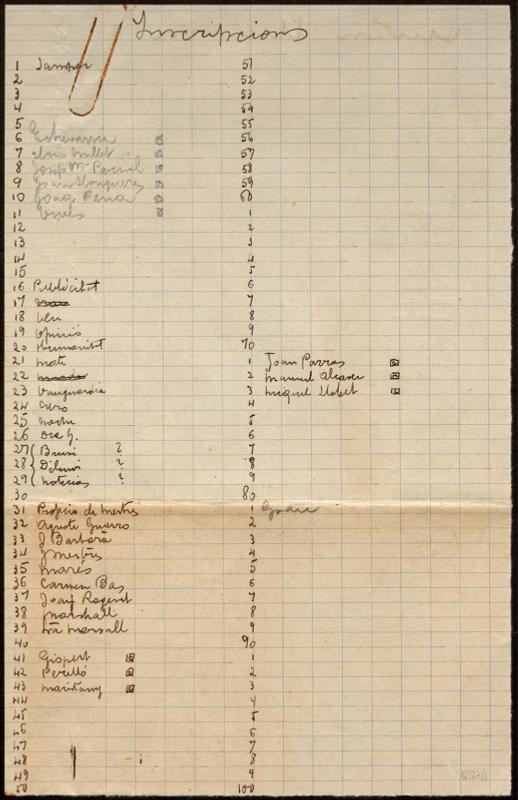 Inscripcions
1
2
3
4
5
6 Echevarria
7 Lluis Millet
8 Josep Mª Pascual
9 Joan Llongueres
10 Joaq Pena
11 Vives
12
13
14
15
16 Publicitat
17
18 Veu
19 Opinió
20 Humanitat
21 Mati
22
23 Vanguardia
24
25 Noche
26 Dia G.
27 Brusi ?
28 Diluvi ?
29 Noticias ?
30
31 Propicio de Mestres
32 Agusti Guerro
33 J Barbarà
34 J Mestres
35 Marés
36 Carmen Bas
37 Josep Rogent
38 Marshall
39 Marsall
40
41 Gispert
42 Perelló
43 Maristany
44
45
46
47
48
49
50
51
52
53
54
55
56
57
58
59
60
1
2
3
4
5
6
7
8
9
70
1 Joan Parras
2 Manuel Alcover
3 Miquel Llobet
4
5
6
7
8
9
80
1
2
3
4
5
6
7
8
9
90
1
2
3
4
5
6
7
8
9
100